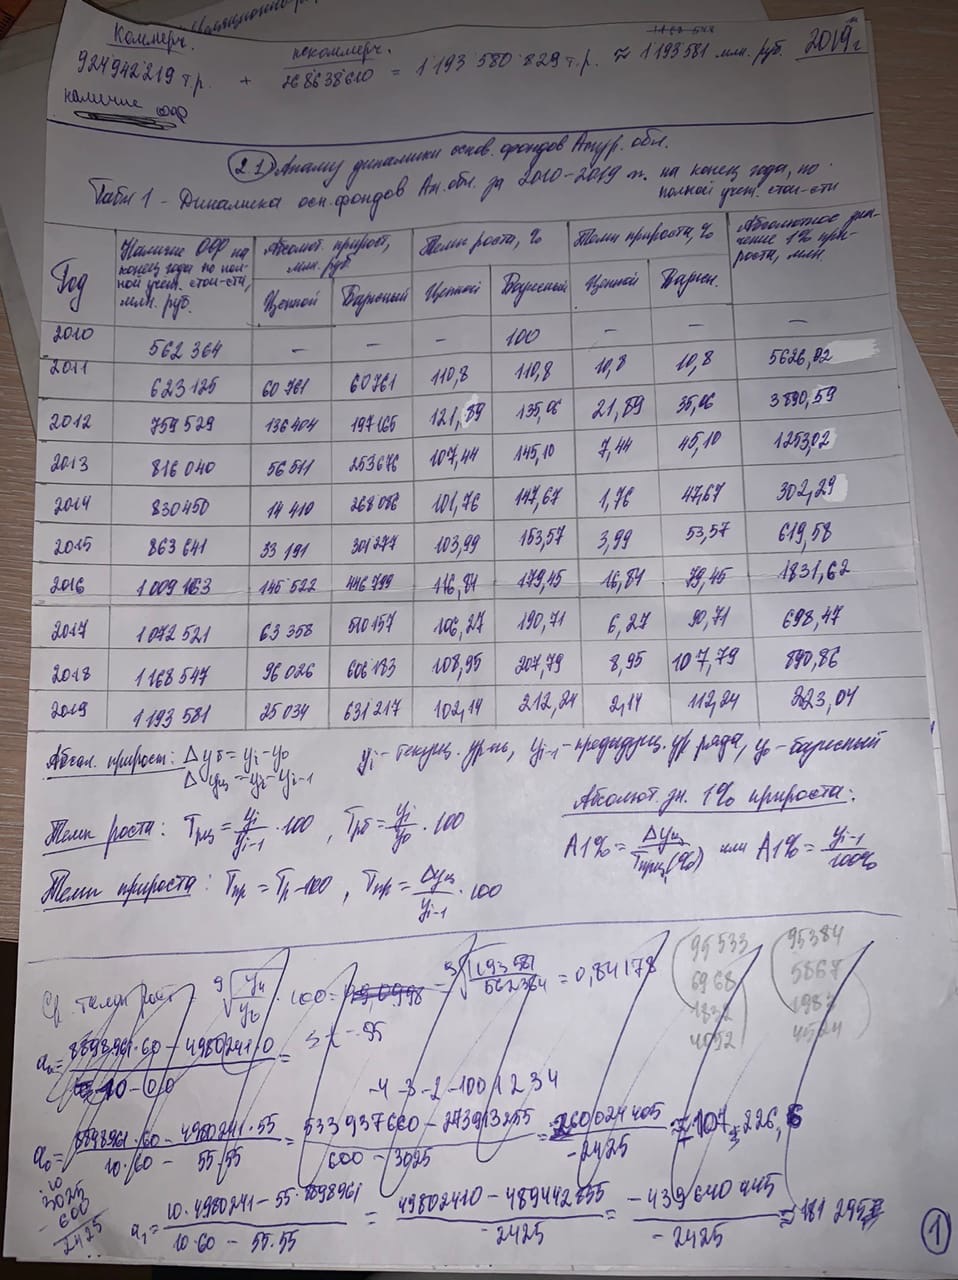 Коммерч. некоммерч. 2019 г
924 942 219 т.р. + 268638610 = 1 193 580 829 т.р. ≈ 1 193 581 млн. руб.
наличие ООФ
2.1 Анализ динамики основ. фондов Амур. обл.
Табл 1 - Динамика осн. фондов Ам. обл. за 2010-2019 гг. на конец года, по полной учет. стои-сти
Год | Наличие ООФ на конец года по полной учет. стои-сти, млн. руб. | Абсолют. прирост, млн. руб. | Темп роста, % | Темп прироста, % | Абсолютное значение 1% прироста, млн.
Цепной | Базисный | Цепной | Базисный | Цепной | Базисн.
2010 | 562 364 | – | – | – | 100 | – | – | –
2011 | 623 125 | 60 761 | 60 761 | 110,8 | 110,8 | 10,8 | 10,8 | 5626,02
2012 | 759 529 | 136 404 | 197 165 | 121,89 | 135,06 | 21,89 | 35,06 | 3890,59
2013 | 816 040 | 56 511 | 253 676 | 107,44 | 145,10 | 7,44 | 45,10 | 1253,02
2014 | 830 450 | 14 410 | 268 086 | 101,76 | 147,67 | 1,76 | 47,67 | 302,29
2015 | 863 641 | 33 191 | 301 277 | 103,99 | 153,57 | 3,99 | 53,57 | 619,58
2016 | 1 009 163 | 145 522 | 446 799 | 116,84 | 179,45 | 16,84 | 79,45 | 1831,62
2017 | 1 072 521 | 63 358 | 510 157 | 106,27 | 190,71 | 6,27 | 90,71 | 698,47
2018 | 1 168 547 | 96 026 | 606 183 | 108,95 | 207,79 | 8,95 | 107,79 | 890,86
2019 | 1 193 581 | 25 034 | 631 217 | 102,14 | 212,24 | 2,14 | 112,24 | 223,04
Абсол. прирост: Δyб = yi - y0 yi - текущ. ур-нь, yi-1 - предыдущ. ур ряда, y0 - базисный
Δyц = yi - yi-1
Абсолют. зн. 1% прироста:
Темп роста: Трц = yi/yi-1 · 100, Трб = yi/y0 · 100
А1% = Δyц/Тпрц(%) или А1% = yi-1/100%
Темп прироста: Тпр = Тр - 100, Тпр = Δyц/yi-1 · 100
95533 95384
6968 5867
1832 1983
4092 4524
Ср. темп рост = 9√yn/y0 · 100 = 9√1193581/562364 = 0,84178
= 8898961·60 - 4980241·0 / =
-4 -3 -2 -1 0 0 1 2 3 4
a0 = 8898961·60 - 4980241·55 / 10·60 - 55·55 = 533937660 - 273913255 / 600 - 3025 = 260024405 / -2425 = -107 226,6
3025
- 600
2425
a1 = 10·4980241 - 55·8898961 / 10·60 - 55·55 = 49802410 - 489442855 / -2425 = -439640445 / -2425 = 181 295
1